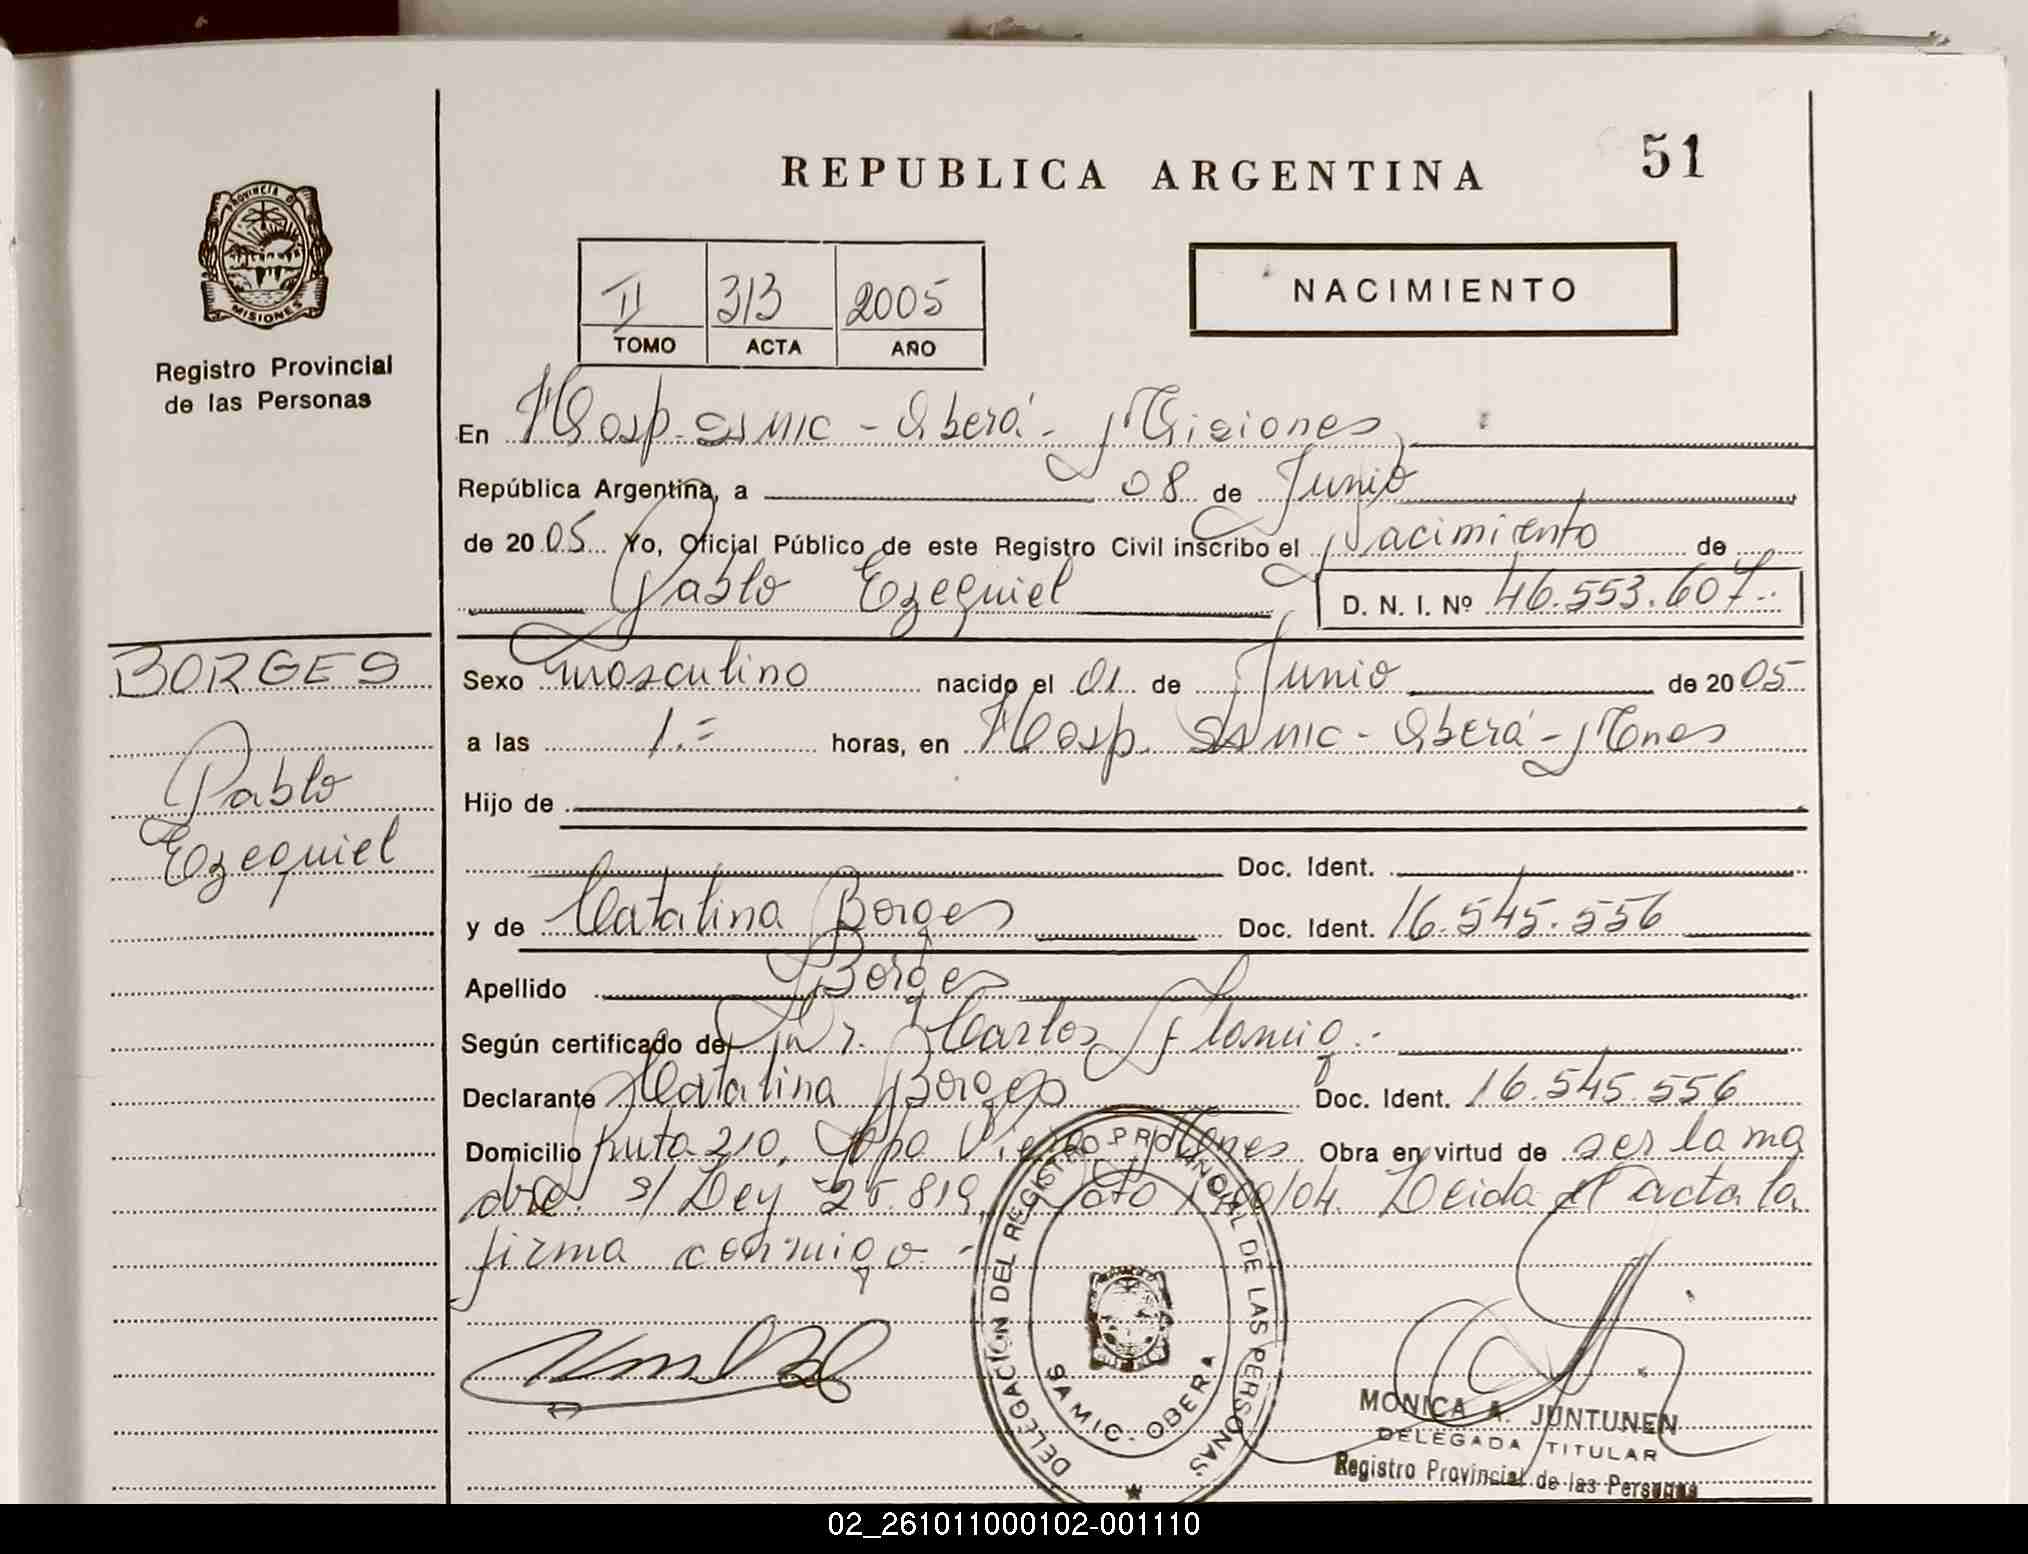 REPUBLICA ARGENTINA
51
PROVINCIA D
MISIONES
Registro Provincial
de las Personas
II 313 2005
TOMO ACTA AÑO
NACIMIENTO
En Hosp. SAMIC - Oberá - Misiones
República Argentina, a 08 de Junio
de 2005 Yo, Oficial Público de este Registro Civil inscribo el Nacimiento de
Pablo Ezequiel D. N. I. Nº 46.553.607.-
BORGES
Pablo
Ezequiel
Sexo masculino nacido el 01 de Junio de 2005
a las 1.= horas, en Hosp. SAMIC - Oberá - Mnes
Hijo de
Doc. Ident.
y de Catalina Borges Doc. Ident. 16.545.556
Apellido Borges
Según certificado de Dr. Carlos
Declarante Catalina Borges Doc. Ident. 16.545.556
Domicilio Ruta 210, Cpo Viera Mnes Obra en virtud de ser la ma
dre. s/ Ley 25.819, /04. Leida el acta la
firma conmigo -
DELEGACIÓN DEL REGISTRO PROVINCIAL DE LAS PERSONAS
SAMIC - OBERA
MONICA A. JUNTUNEN
DELEGADA TITULAR
Registro Provincial de las Personas
02_261011000102-001110